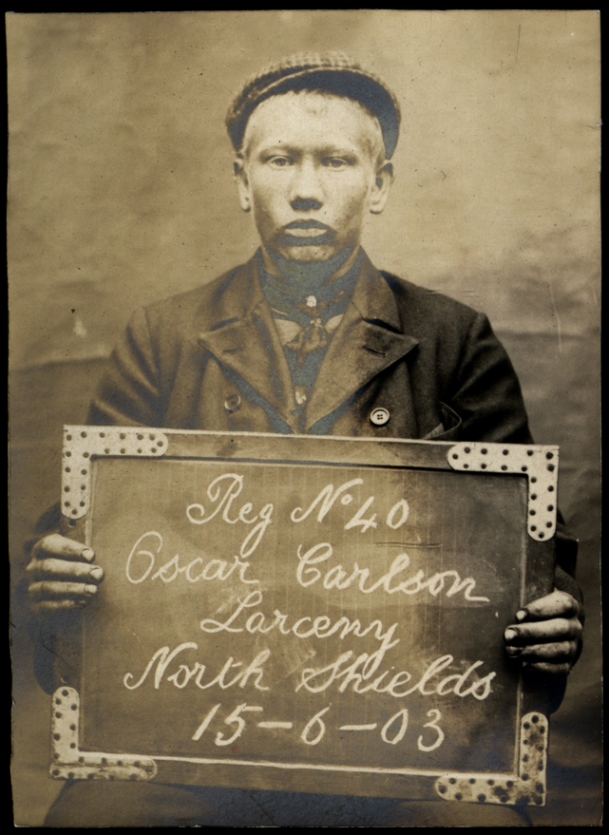 Reg Nº 40
Oscar Carlson
Larceny
North Shields
15-6-03